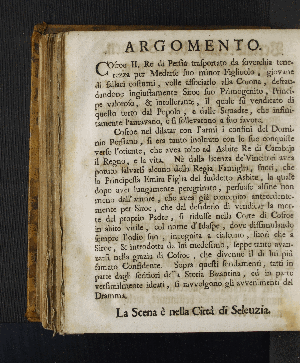 ARGOMENTO.
COsroe II. Re di Persia trasportato da soverchia tene-
rezza per Medarse suo minor Figliuolo, giovane
di fallaci costumi, volle associarlo alla Corona, defrau-
dandone ingiustamente Siroe suo Primogenito, Princi-
pe valoroso, & intollerante, il quale fù vendicato di
questo torto dal Popolo, e dalle Squadre, che infini-
tamente l'amavano, e si sollevarono a suo favore.
Cosroe nel dilatar con l'armi i confini del Domi-
nio Persiano, si era tanto inoltrato con le sue conquiste
verso l'oriente, che avea tolto ad Asbite Re di Cambaja
il Regno, e la vita. Nè dalla licenza de' Vincitori avea
potuto salvarsi alcuno della Regia Famiglia, fuori, che
la Principessa Emira Figlia del suddetto Asbite, la quale
dopo aver lungamente peregrinato, persuasa alfine non
meno dall'amore, che avea già concepito antecedente-
mente per Siroe, che dal desiderio di vendicar la mor-
te del proprio Padre, si ridusse nella Corte di Cosroe
in abito virile, col nome d'Idaspe, dove dissimulando
sempre l'odio suo, incognita a ciascuno, fuori che a
Siroe, & introdotta da lui medesimo, seppe tanto avan-
zarsi nella grazia di Cosroe, che divenne il di lui più
amato Confidente. Sopra questi fondamenti, tatti in
parte dagli scrittori della Storia Bizantina, ed in parte
verisimilmente ideati, si ravvolgono gli avvenimenti del
Dramma.
La Scena è nella Città di Seleuzia.